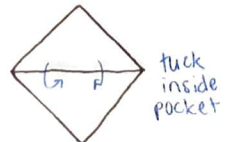 tuck
inside
pocket